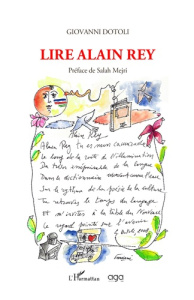 GIOVANNI DOTOLI
LIRE ALAIN REY
Préface de Salah Mejri
Alain Rey
Alain Rey tu es mon camarade
Le long de la route de l'illumination
de la langue
Dans le dictionnaire
Sur le rythme de la poésie de la culture
Tu le temps du langage
Et m'invites à la table du
Le regard pointé sur l'avenir
L'Harmattan
aga